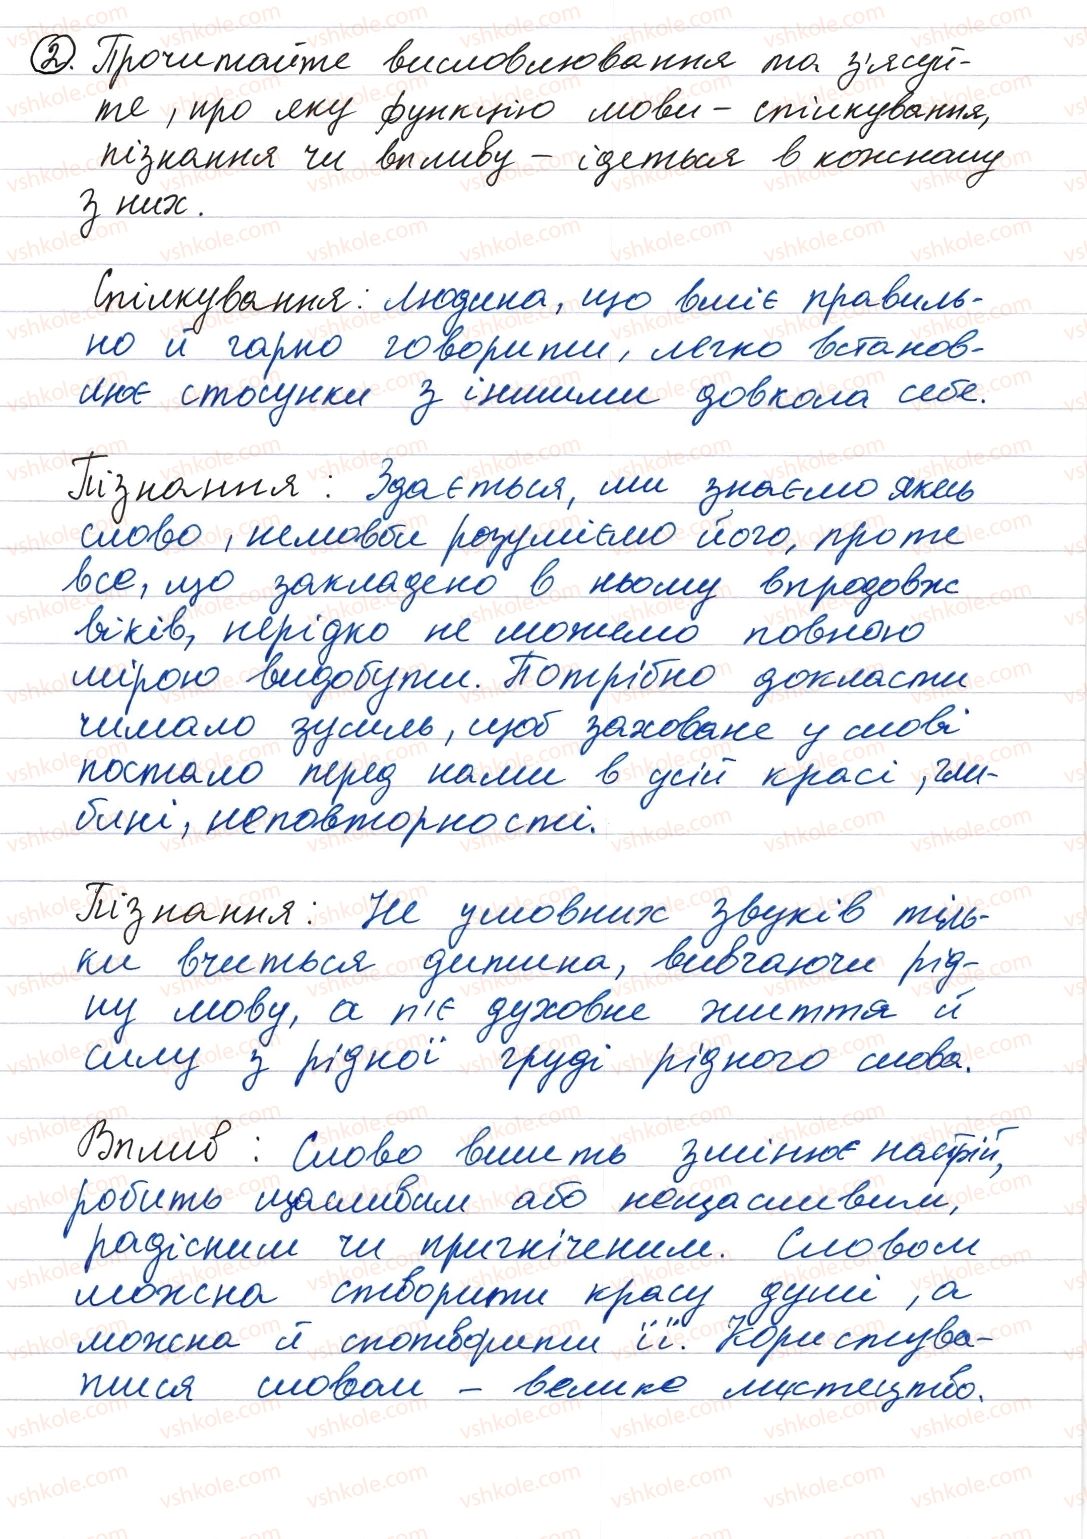 2. Прочитайте висловлювання та з'ясуй-
те, про яку функцію мови – спілкування,
пізнання чи впливу – ідеться в кожному
з них.
Спілкування: Людина, що вміє правиль-
но й гарно говорити, легко встанов-
лює стосунки з іншими довкола себе.
Пізнання: Здається, ми знаємо якесь
слово, немовби розуміємо його, проте
все, що закладено в ньому впродовж
віків, нерідко не можемо повною
мірою видобути. Потрібно докласти
чимало зусиль, щоб заховане у слові
постало перед нами в усій красі, гли-
бині, неповторності.
Пізнання: Не умовних звуків тіль-
ки вчиться дитина, вивчаючи рід-
ну мову, а п'є духовне життя й
силу з рідної груді рідного слова.
Вплив: Слово вмить змінює настрій,
робить щасливим або нещасливим,
радісним чи пригніченим. Словом
можна створити красу душі, а
можна й спотворити її. Користува-
тися словом – велике мистецтво.